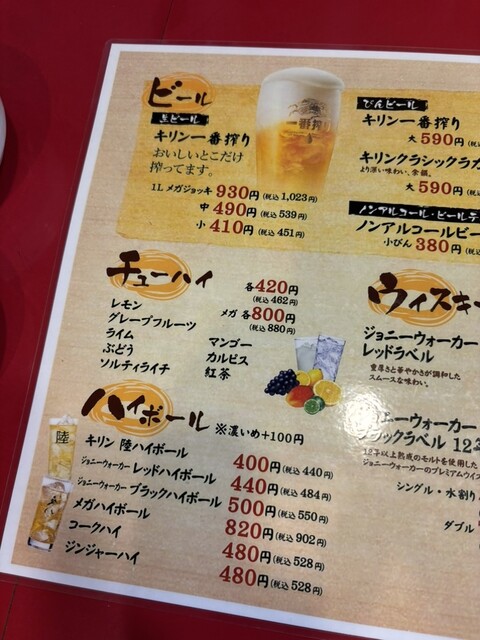 ビール
生ビール
キリン一番搾り
おいしいとこだけ
搾ってます。
1L メガジョッキ 930円 (税込 1,023円)
中 490円 (税込 539円)
小 410円 (税込 451円)
一番搾り
びんビール
キリン一番搾り
大 590円
キリンクラシックラガ
より深い味わい、余韻。
大 590円 (税込
ノンアルコール・ビールテ
ノンアルコールビー
小びん 380円 (税込
チューハイ
各 420円
(税込 462円)
メガ 各 800円
(税込 880円)
レモン
グレープフルーツ
ライム
ぶどう
ソルティライチ
マンゴー
カルピス
紅茶
ハイボール
※濃いめ+100円
陸
キリン 陸ハイボール 400円 (税込 440円)
ジョニーウォーカー レッドハイボール 440円 (税込 484円)
ジョニーウォーカー ブラックハイボール 500円 (税込 550円)
メガハイボール 820円 (税込 902円)
コークハイ 480円 (税込 528円)
ジンジャーハイ 480円 (税込 528円)
ウイスキー
ジョニーウォーカー
レッドラベル
豊厚さと華やかさが調和した
スムースな味わい。
ニーウォーカー
ラックラベル 12
12年以上熟成のモルトを使用した
ジョニーウォーカーのプレミアムウイス
シングル・水割り
ダブル